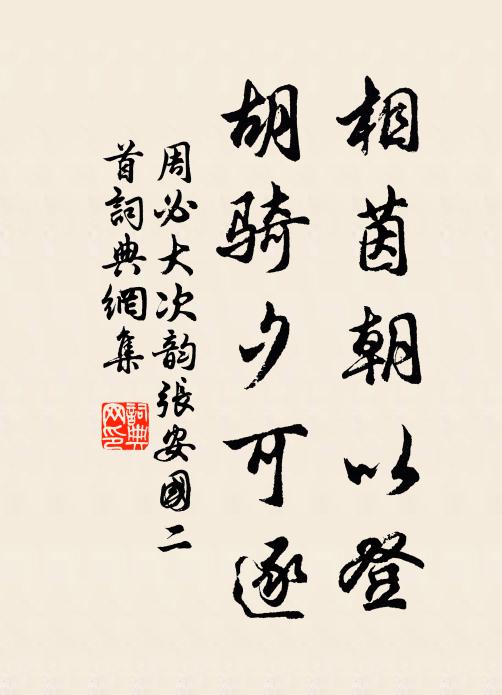 相茵朝以登
胡騎夕可逐
周必大次韵張安國二
首詞典網集
詞典网印